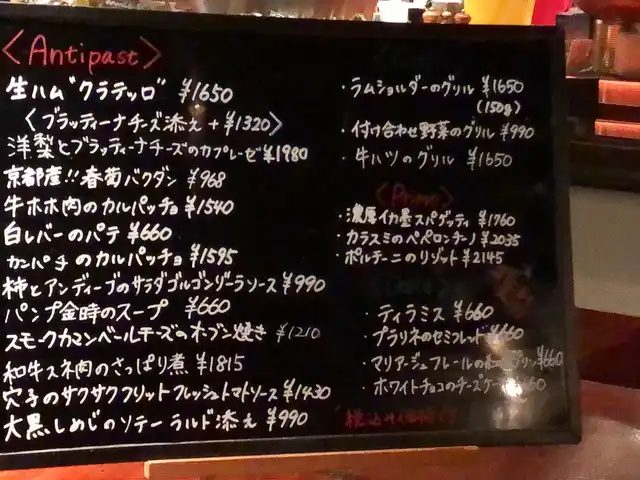 〈Antipast〉
生ハム"クラテッロ" ¥1650
〈ブラッティーナチーズ添え +¥1320〉
洋梨とブラッティーナチーズのカプレーゼ ¥1980
京都産!! 春菊バクダン ¥968
牛ホホ肉のカルパッチョ ¥1540
白レバーのパテ ¥660
カンパチのカルパッチョ ¥1595
柿とアンディーブのサラダゴルゴンゾーラソース ¥990
パンプ金時のスープ ¥660
スモークカマンベールチーズのオーブン焼き ¥1210
和牛スネ肉のさっぱり煮 ¥1815
穴子のサクサクフリットフレッシュトマトソース ¥1430
大黒しめじのソテー ラルド添え ¥990
・ラムショルダーのグリル ¥1650
(150g)
・付け合わせ野菜のグリル ¥990
・牛ハツのグリル ¥1650
〈Primo〉
・濃厚イカ墨スパゲッティ ¥1760
・カラスミのペペロンチーノ ¥2035
・ポルチーニのリゾット ¥2145
・ティラミス ¥660
・プラリネのセミフレッド ¥660
・マリアージュフレールの ¥660
・ホワイトチョコのチーズケーキ